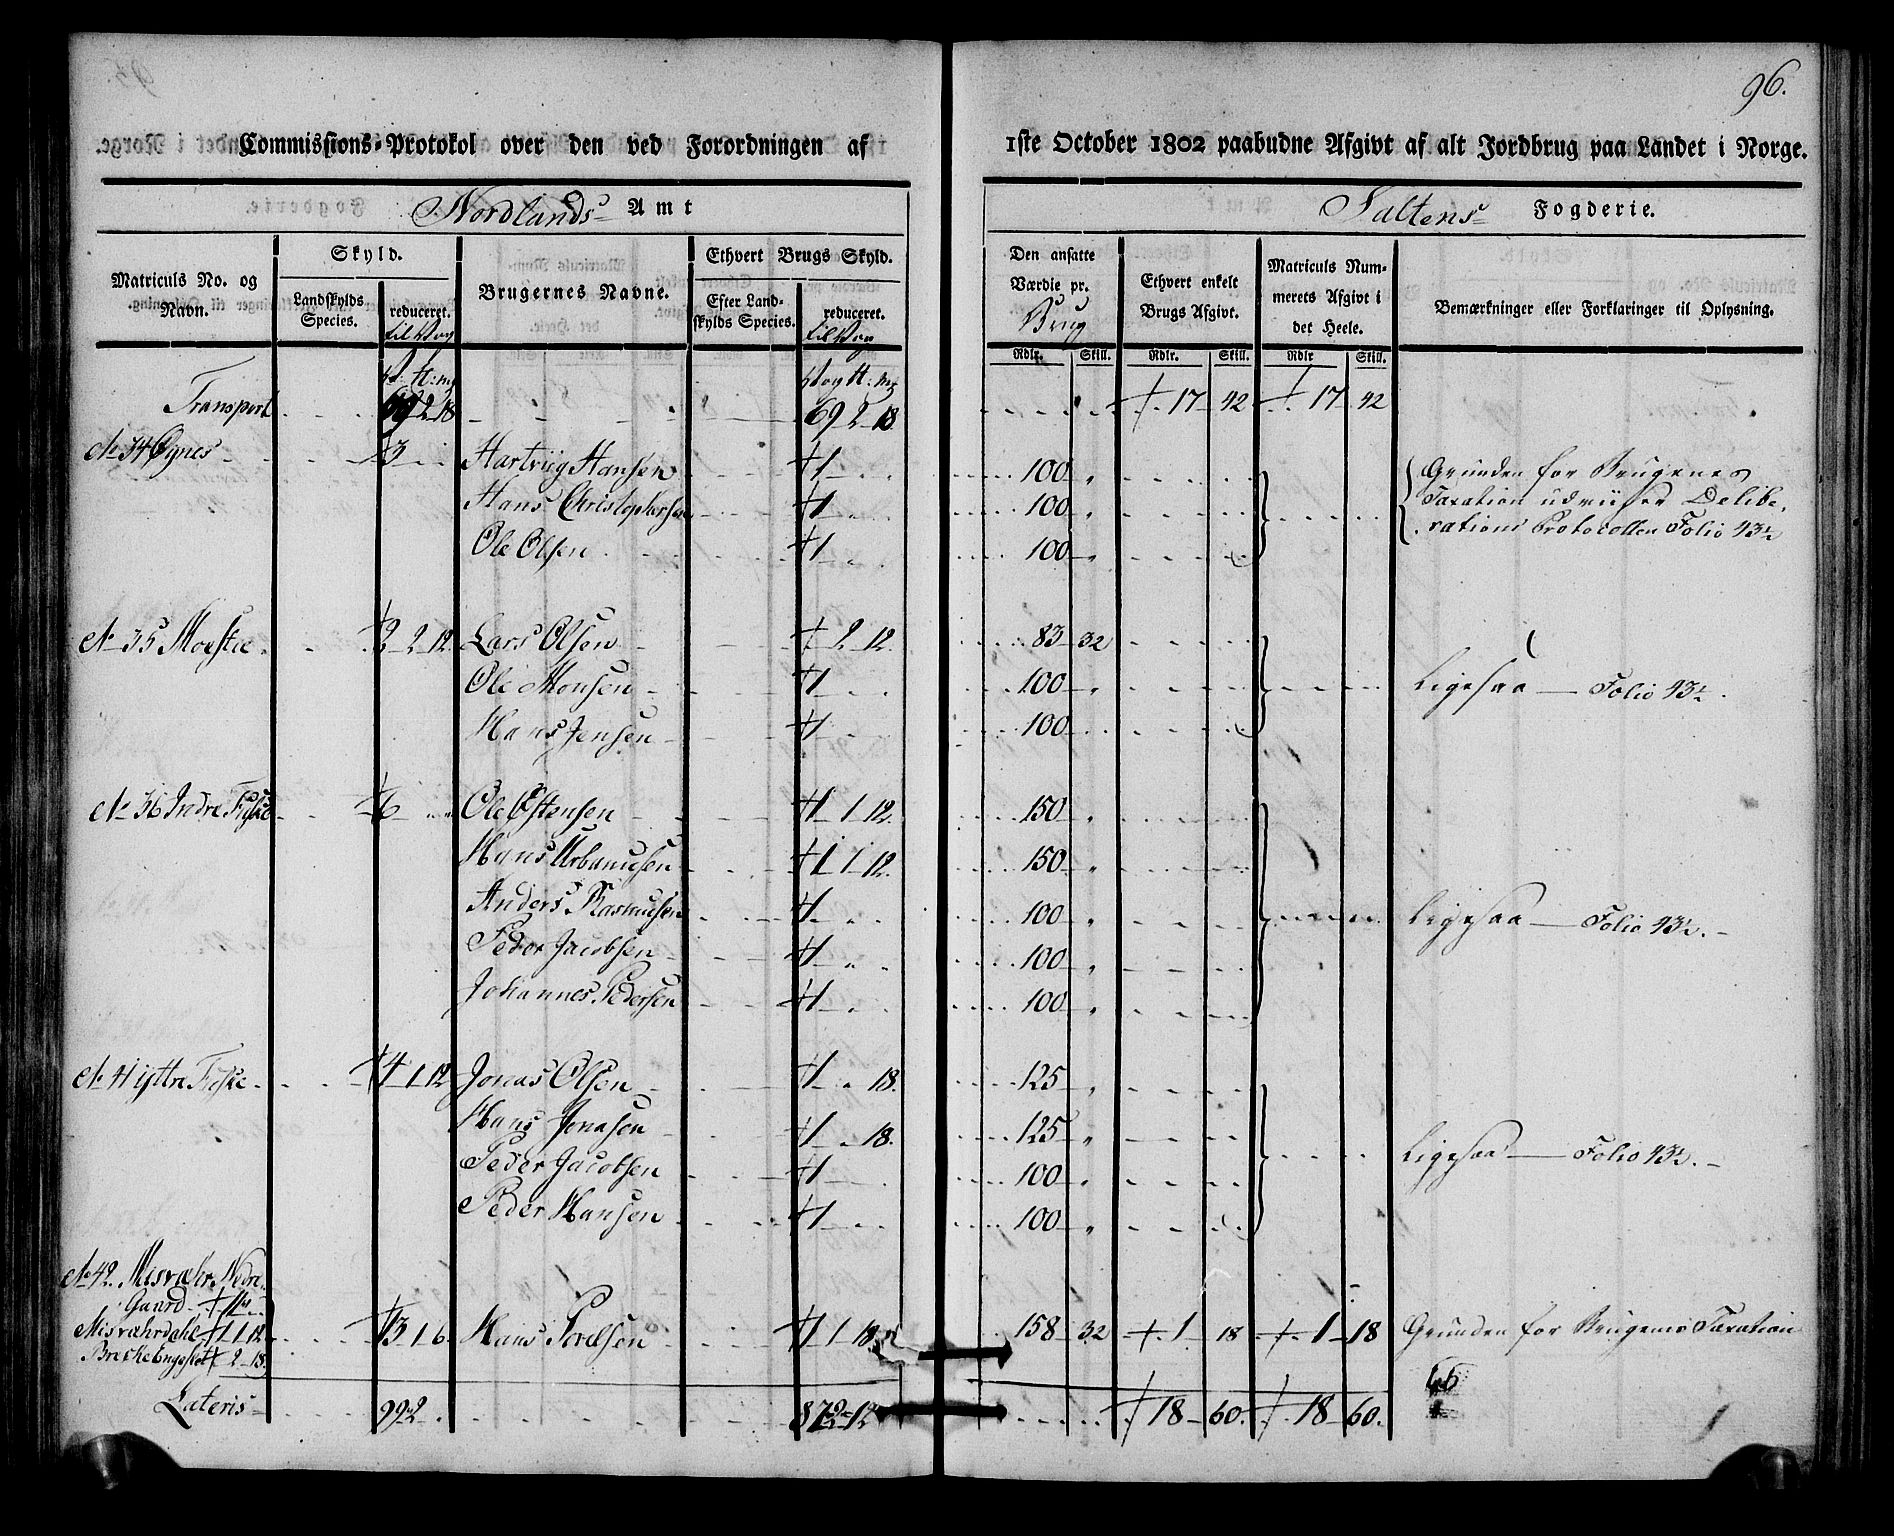 96.
Commissions-Protokol over den ved Forordningen af 1ste October 1802 paabudne Afgivt af alt Jordbrug paa Landet i Norge.
Nordlands Amt Saltens Fogderie.
Matriculs No. og Navn.
Skyld.
Landskylds Species.
reduceret. til Vog
Brugernes Navne.
Ethvert Brugs Skyld.
Efter Landskylds Species.
reduceret. til Vog
Den ansatte Værdie pr. Brug
Rdlr. Skill.
Ethvert enkelt Brugs Afgivt.
Rdlr. Skill.
Matriculs Nummerets Afgivt i det Heele.
Rdlr Skill.
Bemærkninger eller Forklaringer til Oplysning.
Transport 69 2 18 69 2 18 17 42 17 42
No 34 Øgnes 3 Hartvig Hansen 1 100 Grunden for Brugenes
Hans Christophersen 1 100 Taxation udviiser Delibe-
Ole Olsen 1 100 rations Protocollen Folio 43½
No 35 Moestue 2 2 12 Lars Olsen 2 12 83 32
Ole Monsen 1 100 Ligesaa Folio 43½.
Hans Jensen 1 100
No 36 Indre Fiske 6 Ole Estensen 1 1 12 150
Hans Urbanusen 1 1 12 150
Anders Rasmusen 1 100 Ligesaa Folio 43½.
Peder Jacobsen 1 100
Johannes Pedersen 1 100
No 41 Yttre Fiske 4 1 12 Jonas Olsen 1 18. 125
Hans Jonasen 1 18. 125
Peder Jacobsen 1 100 Ligesaa Folio 43½.
Peder Hansen 1 100
No 42. Misvær Nedre
Gaard 1
Misværdahl 1 1 12 3 1 6 Hans Povelsen 1 1 18 158 32 1 18 1 18 Grunden for Brugernes Taxation
Breske Engeslet 2 18
Lateris 99 2 87 2 12 18 60. 18 60.